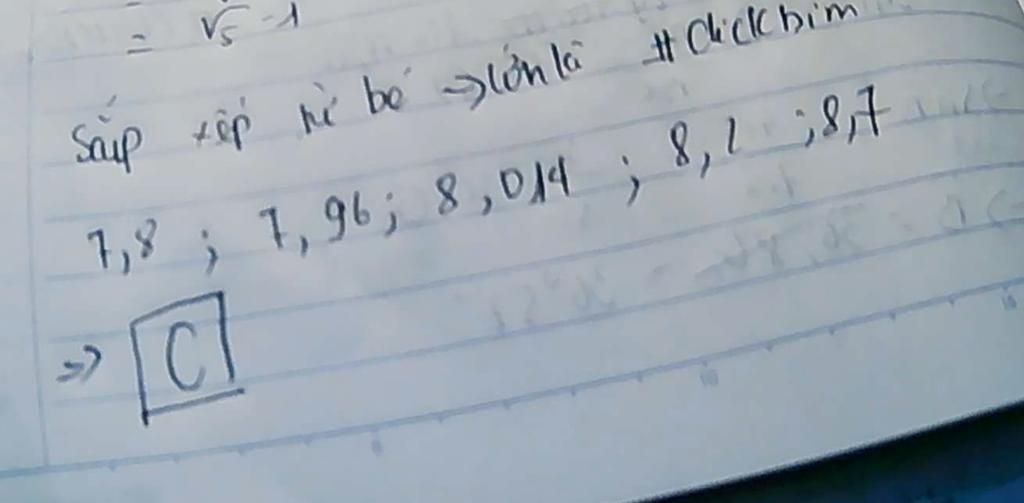 = √5 -1
Sắp xếp từ bé => lớn là #Clickbim
7,8 ; 7,96; 8,014 ; 8,1 ; 8,7
=> C